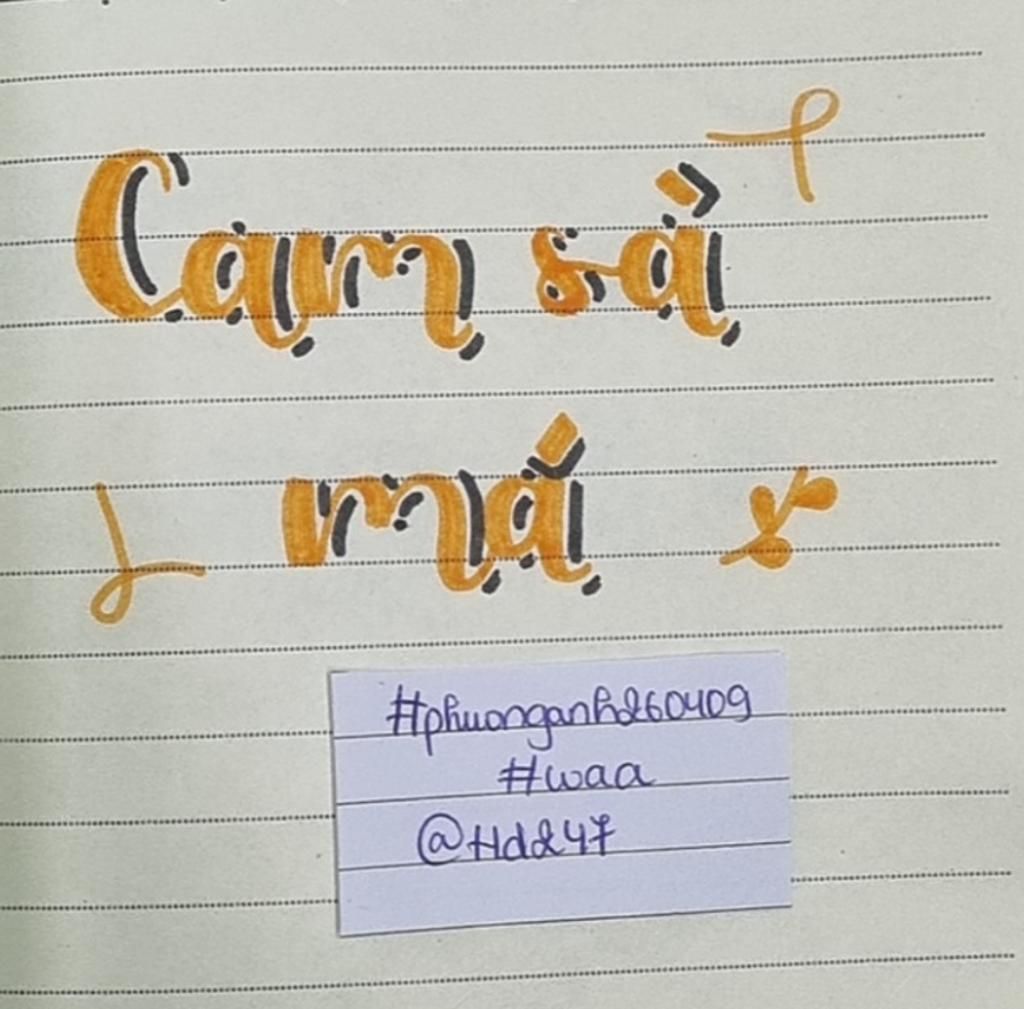 Cam sà
má
#phuonganh260409
#waa
@Hd247